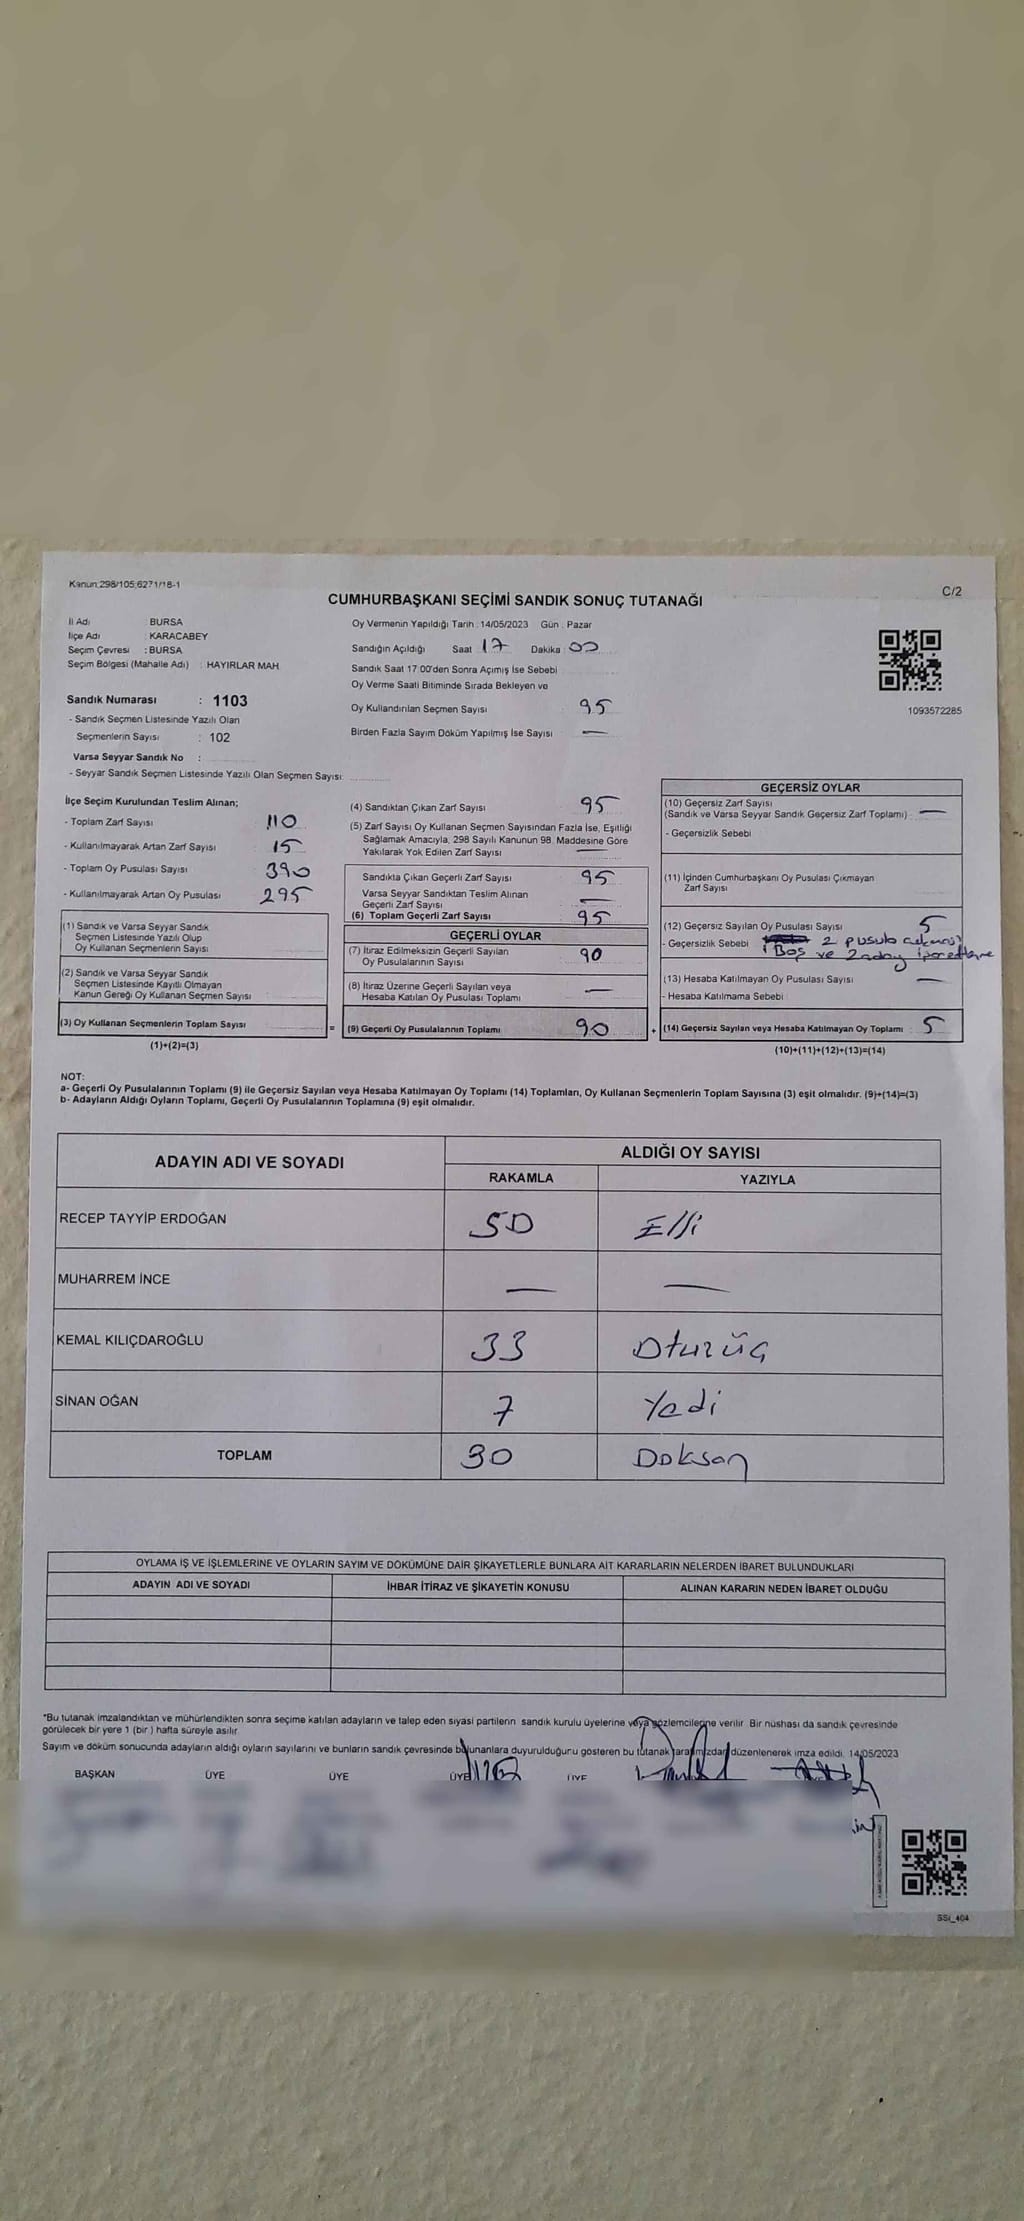 Kanun;298/105;6271/18-1
C/2
CUMHURBAŞKANI SEÇİMİ SANDIK SONUÇ TUTANAĞI
İl Adı : BURSA
İlçe Adı : KARACABEY
Seçim Çevresi : BURSA
Seçim Bölgesi (Mahalle Adı) : HAYIRLAR MAH
Sandık Numarası : 1103
- Sandık Seçmen Listesinde Yazılı Olan
Seçmenlerin Sayısı : 102
Varsa Seyyar Sandık No :
- Seyyar Sandık Seçmen Listesinde Yazılı Olan Seçmen Sayısı:
Oy Vermenin Yapıldığı Tarih : 14/05/2023 Gün : Pazar
Sandığın Açıldığı Saat 17 Dakika : 00
Sandık Saat 17:00'den Sonra Açımış İse Sebebi
Oy Verme Saati Bitiminde Sırada Bekleyen ve
Oy Kullandırılan Seçmen Sayısı 95
Birden Fazla Sayım Döküm Yapılmış İse Sayısı —
1093572285
İlçe Seçim Kurulundan Teslim Alınan;
- Toplam Zarf Sayısı 110
- Kullanılmayarak Artan Zarf Sayısı 15
- Toplam Oy Pusulası Sayısı 390
- Kullanılmayarak Artan Oy Pusulası 295
(1) Sandık ve Varsa Seyyar Sandık
Seçmen Listesinde Yazılı Olup
Oy Kullanan Seçmenlerin Sayısı
(2) Sandık ve Varsa Seyyar Sandık
Seçmen Listesinde Kayıtlı Olmayan
Kanun Gereği Oy Kullanan Seçmen Sayısı
(3) Oy Kullanan Seçmenlerin Toplam Sayısı =
(1)+(2)=(3)
(4) Sandıktan Çıkan Zarf Sayısı 95
(5) Zarf Sayısı Oy Kullanan Seçmen Sayısından Fazla İse, Eşitliği
Sağlamak Amacıyla, 298 Sayılı Kanunun 98. Maddesine Göre
Yakılarak Yok Edilen Zarf Sayısı —
Sandıkta Çıkan Geçerli Zarf Sayısı 95
Varsa Seyyar Sandıktan Teslim Alınan
Geçerli Zarf Sayısı —
(6) Toplam Geçerli Zarf Sayısı 95
GEÇERLİ OYLAR
(7) İtiraz Edilmeksizin Geçerli Sayılan
Oy Pusulalarının Sayısı 90
(8) İtiraz Üzerine Geçerli Sayılan veya
Hesaba Katılan Oy Pusulası Toplamı —
(9) Geçerli Oy Pusulalarının Toplamı 90 +
GEÇERSİZ OYLAR
(10) Geçersiz Zarf Sayısı
(Sandık ve Varsa Seyyar Sandık Geçersiz Zarf Toplamı) : —
- Geçersizlik Sebebi
(11) İçinden Cumhurbaşkanı Oy Pusulası Çıkmayan
Zarf Sayısı
(12) Geçersiz Sayılan Oy Pusulası Sayısı 5
- Geçersizlik Sebebi 2 pusula
1 Boş ve 2 aday
(13) Hesaba Katılmayan Oy Pusulası Sayısı —
- Hesaba Katılmama Sebebi
(14) Geçersiz Sayılan veya Hesaba Katılmayan Oy Toplamı : 5
(10)+(11)+(12)+(13)=(14)
NOT:
a- Geçerli Oy Pusulalarının Toplamı (9) ile Geçersiz Sayılan veya Hesaba Katılmayan Oy Toplamı (14) Toplamları, Oy Kullanan Seçmenlerin Toplam Sayısına (3) eşit olmalıdır. (9)+(14)=(3)
b- Adayların Aldığı Oyların Toplamı, Geçerli Oy Pusulalarının Toplamına (9) eşit olmalıdır.
ADAYIN ADI VE SOYADI
ALDIĞI OY SAYISI
RAKAMLA YAZIYLA
RECEP TAYYİP ERDOĞAN 50 Elli
MUHARREM İNCE — —
KEMAL KILIÇDAROĞLU 33 Otuzüç
SİNAN OĞAN 7 Yedi
TOPLAM 90 Doksan
OYLAMA İŞ VE İŞLEMLERİNE VE OYLARIN SAYIM VE DÖKÜMÜNE DAİR ŞİKAYETLERLE BUNLARA AİT KARARLARIN NELERDEN İBARET BULUNDUKLARI
ADAYIN ADI VE SOYADI İHBAR İTİRAZ VE ŞİKAYETİN KONUSU ALINAN KARARIN NEDEN İBARET OLDUĞU
*Bu tutanak imzalandıktan ve mühürlendikten sonra seçime katılan adayların ve talep eden siyasi partilerin sandık kurulu üyelerine veya gözlemcilerine verilir. Bir nüshası da sandık çevresinde
görülecek bir yere 1 (bir ) hafta süreyle asılır.
Sayım ve döküm sonucunda adayların aldığı oyların sayılarını ve bunların sandık çevresinde bulunanlara duyurulduğunu gösteren bu tutanak tarafımızdan düzenlenerek imza edildi. 14/05/2023
BAŞKAN ÜYE ÜYE ÜYE ÜYE
SSi_404